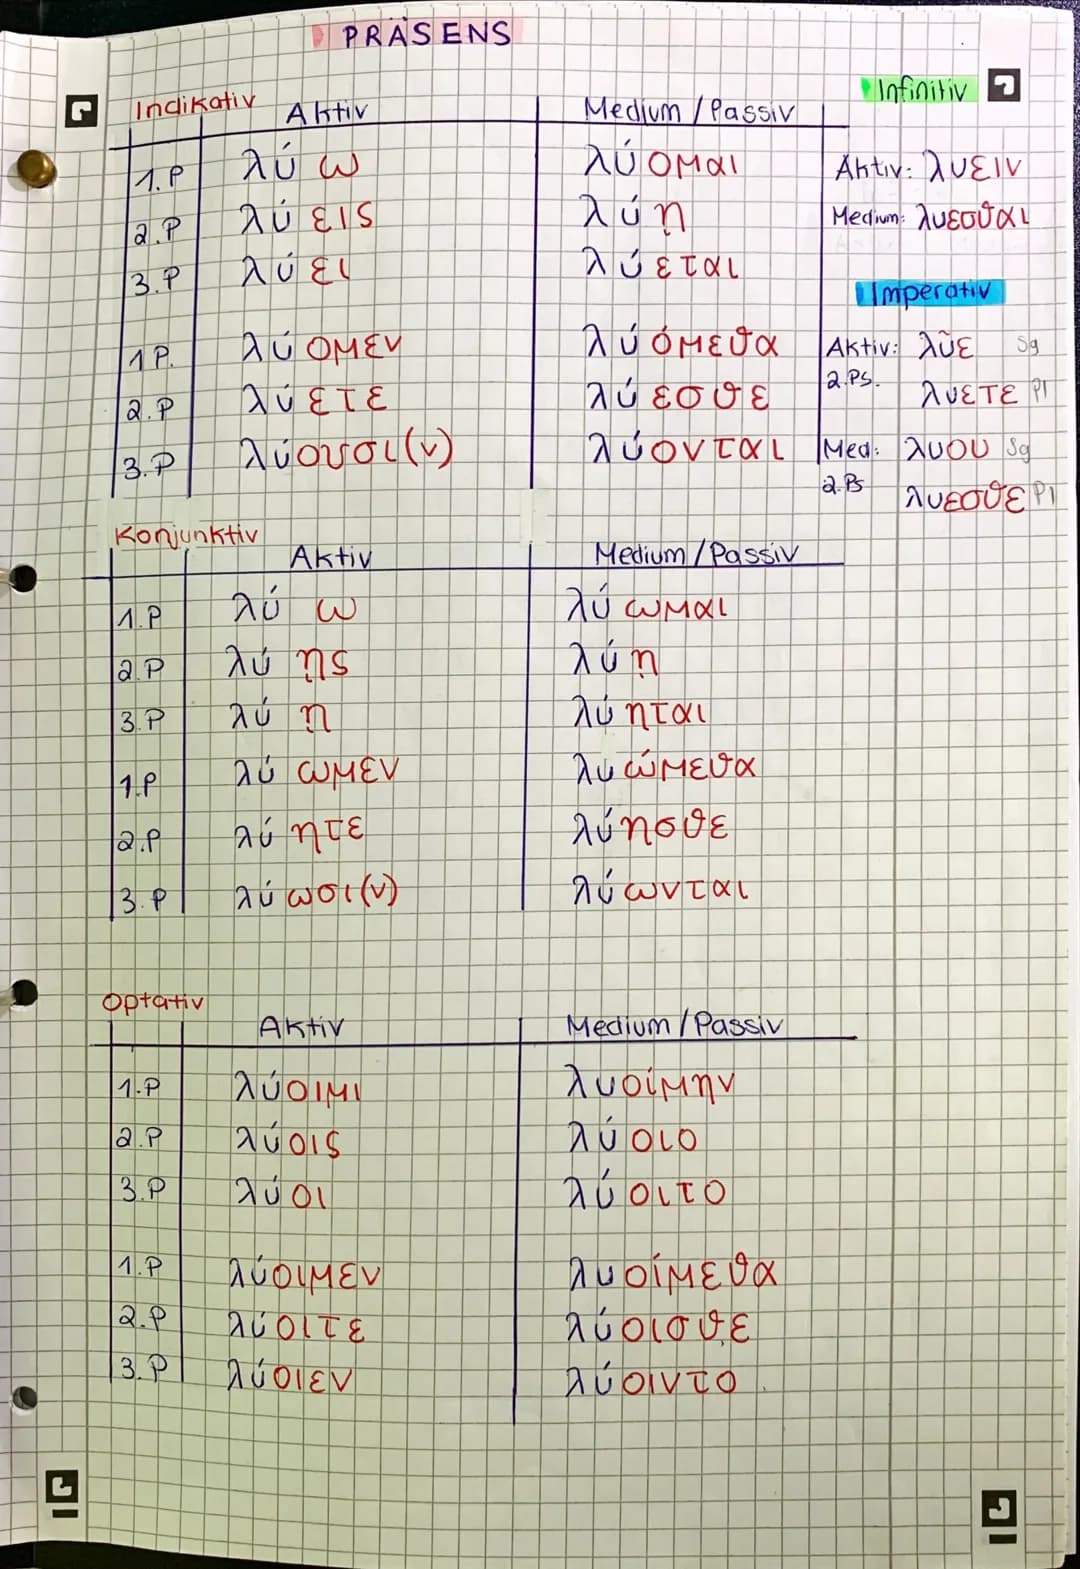 PRÄSENS
Indikativ Aktiv Medium/Passiv
1.P λύ ω λύ ομαι
2.P λύ εις λύ ῃ
3.P λύ ει λύ εται
1P. λύ ομεν λύ όμεθα
2.P λύ ετε λύ εσθε
3.P λύουσι(ν) λύονται
Infinitiv
Aktiv: λυειν
Medium: λυεσθαι
Imperativ
Aktiv: λῦε Sg
2.Ps. λυετε Pl
Med: λυου Sg
2.Ps λυεσθε Pl
Konjunktiv Aktiv Medium/Passiv
1.P λύ ω λύ ωμαι
2.P λύ ῃς λύ ῃ
3.P λύ ῃ λύ ηται
1.P λύ ωμεν λυ ώμεθα
2.P λύ ητε λύησθε
3.P λύ ωσι(ν) λύ ωνται
Optativ Aktiv Medium/Passiv
1.P λύοιμι λυοίμην
2.P λύοις λύ οιο
3.P λύ οι λύ οιτο
1.P λύοιμεν λυοίμεθα
2.P λύ οιτε λύοισθε
3.P λύοιεν λύ οιντο